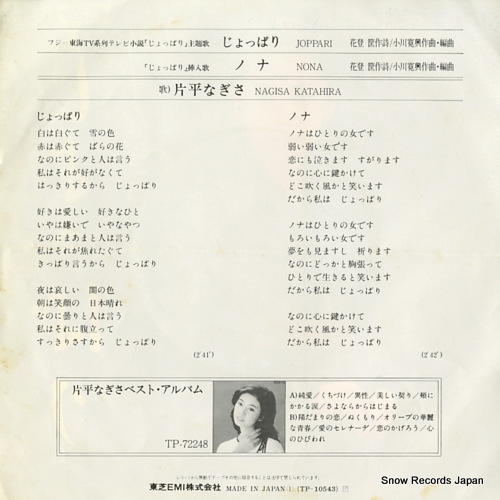 フジ－東海TV系列テレビ小説「じょっぱり」主題歌 じょっぱり JOPPARI 花登 筐作詩/小川寛興作曲・編曲
「じょっぱり」挿入歌 ノナ NONA 花登 筐作詩/小川寛興作曲・編曲
歌) 片平なぎさ NAGISA KATAHIRA
じょっぱり
白は白ぐて 雪の色
赤は赤ぐて ばらの花
なのにピンクと人は言う
私はそれが好がなくて
はっきりするから じょっぱり
好きは愛しい 好きなひと
いやは嫌いで いやなやつ
なのにまあまと人は言う
私はそれが焦れたぐて
きっぱり言うから じょっぱり
夜は哀しい 闇の色
朝は笑顔の 日本晴れ
なのに曇りと人は言う
私はそれに腹立って
すっきりさすから じょっぱり
(2'41")
ノナ
ノナはひとりの女です
弱い弱い女です
恋にも泣きます すがります
なのに心に鍵かけて
どこ吹く風かと笑います
だから私は じょっぱり
ノナはひとりの女です
もろいもろい女です
夢をも見ますし 祈ります
なのにどっかと胸張って
ひとりで生きると笑います
だから私は じょっぱり
なのに心に鍵かけて
どこ吹く風かと笑います
だから私は じょっぱり
(2'42")
片平なぎさベスト・アルバム
TP-72248
A)純愛/くちづけ/異性/美しい契り/頬に
かかる涙/さよならからはじまる
B)陽だまりの恋/ぬくもり/オリーブの華麗
な青春/愛のセレナーデ/恋のかげろう/心
のひびわれ
東芝EMI株式会社 MADE IN JAPAN (TP-10543)
Snow Records Japan